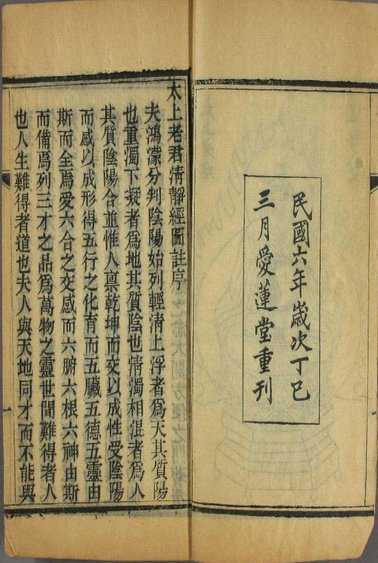 民國六年歲次丁巳
三月愛蓮堂重刊
太上老君淸靜經圖註序
夫鴻濛分判陰陽始列輕淸上浮者爲天其質陽
也重濁下凝者爲地其質陰也淸濁相混者爲人
其質陰陽合並惟人稟乾坤而交以成性受陰陽
而感以成形得五行之化育而五臟五德五靈由
斯而全爲愛六合之交感而六腑六根六神由斯
而備爲列三才之品爲萬物之靈世間難得者人
也人生難得者道也夫人與天地同才而不能與